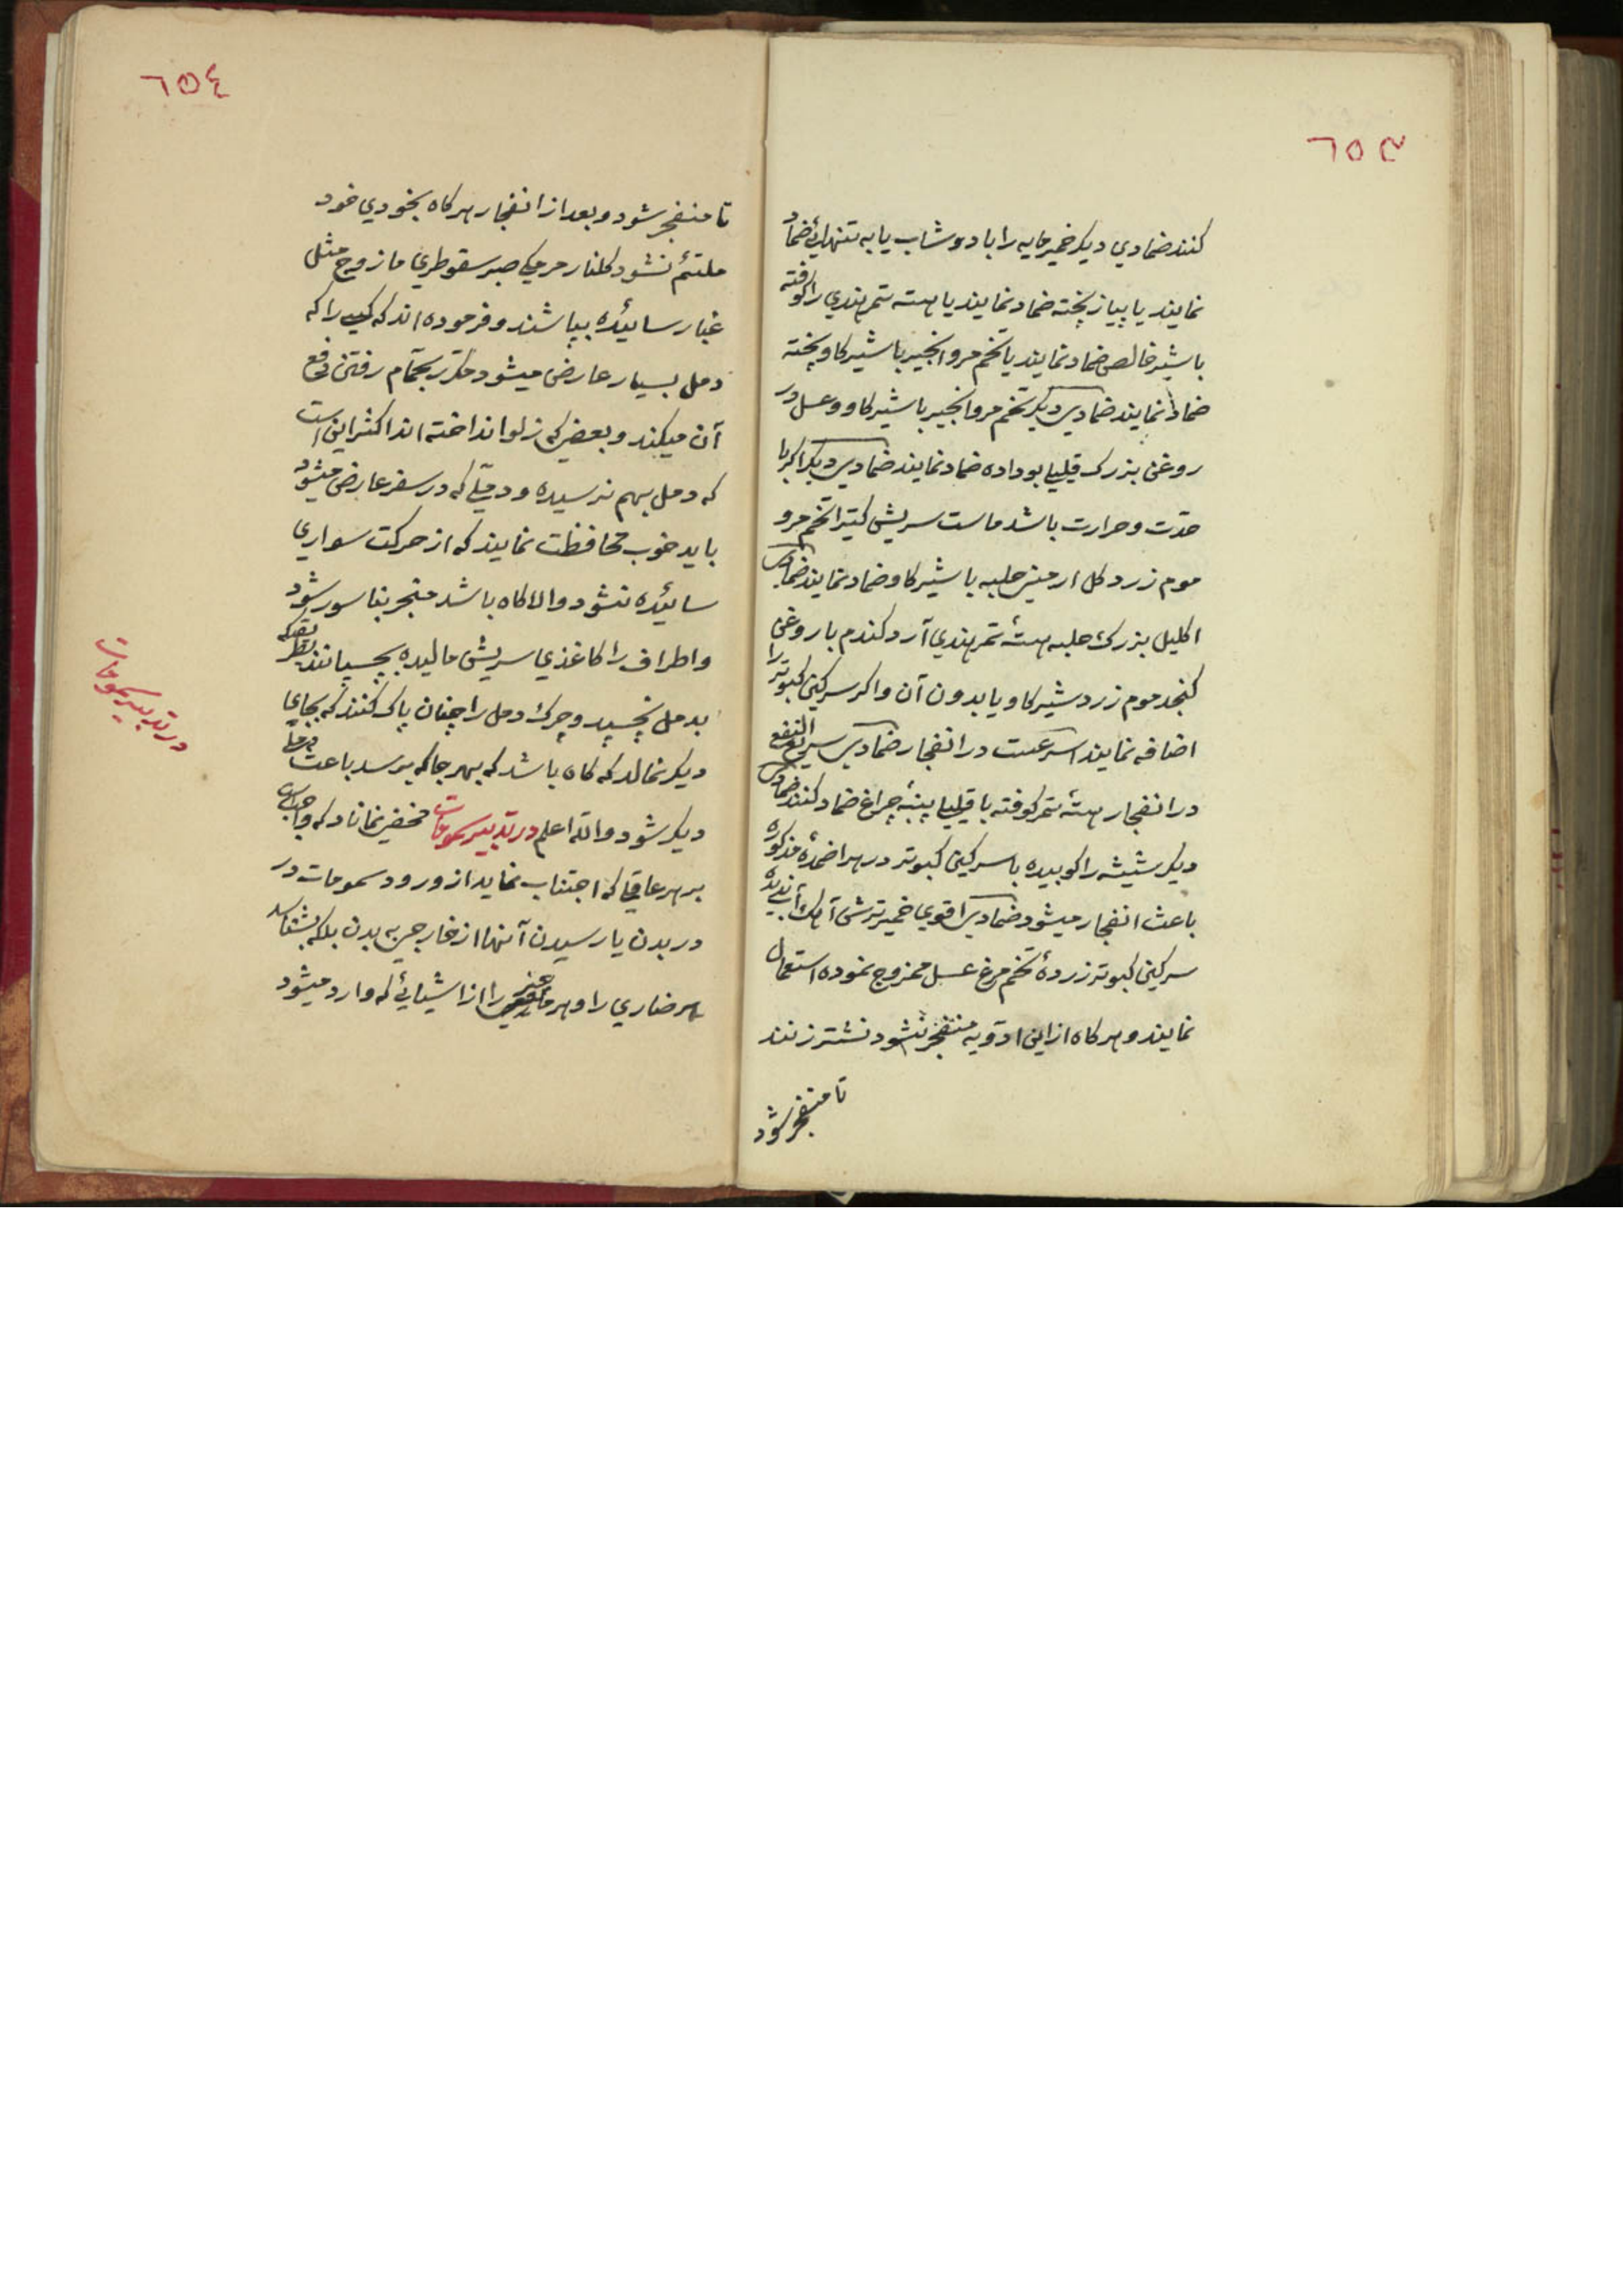 ٦٥٣
کنند ضمادي دیکر خمیر مایه را با دوشاب یا به تنهائي ضماد
نمایند یا پیاز پخته ضماد نمایند یا هسته تمر هندي را کوفته
با شیر خالص ضماد نمایند یا تخم مرو انجیر با شیر کاو پخته
ضماد نمایند ضمادی دیکر تخم مرو انجیر با شیر کاو و عسل در
روغن بزرک قلیلا بو داده ضماد نمایند ضمادی دیکر اکر با
حدّت و حرارت باشد ماست سریش کتیرا تخم مرو
موم زرد کل ارمنی حلبه با شیر کاو ضماد نمایند ضمادی
اکلیل بزرک حلبه هستۀ تمر هندي آرد کندم با روغن
کنجد موم زرد شیر کاو یا بدون آن و اکر سرکین کبوتر را
اضافه نمایند اسرعست در انفجار ضمادی سریع النفع
در انفجار هستۀ تمر کوفته با قلیلا پنبۀ چراغ ضماد کنند ضمادی
دیکر شیشه را کوبیده با سرکین کبوتر در هر اضمدۀ مذکوره
باعث انفجار میشود ضمادی اقوي خمیر ترش آهک آب ندیده
سرکین کبوتر زردۀ تخم مرغ عسل ممزوج نموده استعمال
نمایند و هر کاه از این ادویه منفجر نشود نشتر زنند
تا منفجر شود
٦٥٤
تا منفجر شود و بعد از انفجار هر کاه بخودي خود
ملتئم نشود کلنار مرمکي صبر سقوطري مازوج مثل
غبار سائیده بپاشند و فرموده اند که کسي را که
دمل بسیار عارض میشود مکرّر بحمّام رفتن دفع
آن میکند و بعضي که زلو انداخته اند اکثر این است
که دمل بهم نرسیده و دملي که در سفر عارض میشود
باید خوب محافظت نمایند که از حرکت سواري
سائیده نشود و الا کاه باشد منجر بناسور شود
و اطراف را کاغذي سریش مالیده بچسپانند بطریقیکه
بدمل نچسپد و چرک دمل را چنان پاک کنند که بجاي
دیکر نمالد که کاه باشد که بهر جا که برسد باعث دملي
دیکر شود والله اعلم در تدبیر سمومات مخفي نماناد که واجب است
بر هر عاقلي که اجتناب نماید از ورود سمومات در
در بدن یا رسیدن آنها از خارج به بدن بلکه بشناسد
هر ضاري را و هر غیر مألوفي را از اشیائي که وارد میشود
در تدبیر سمومات